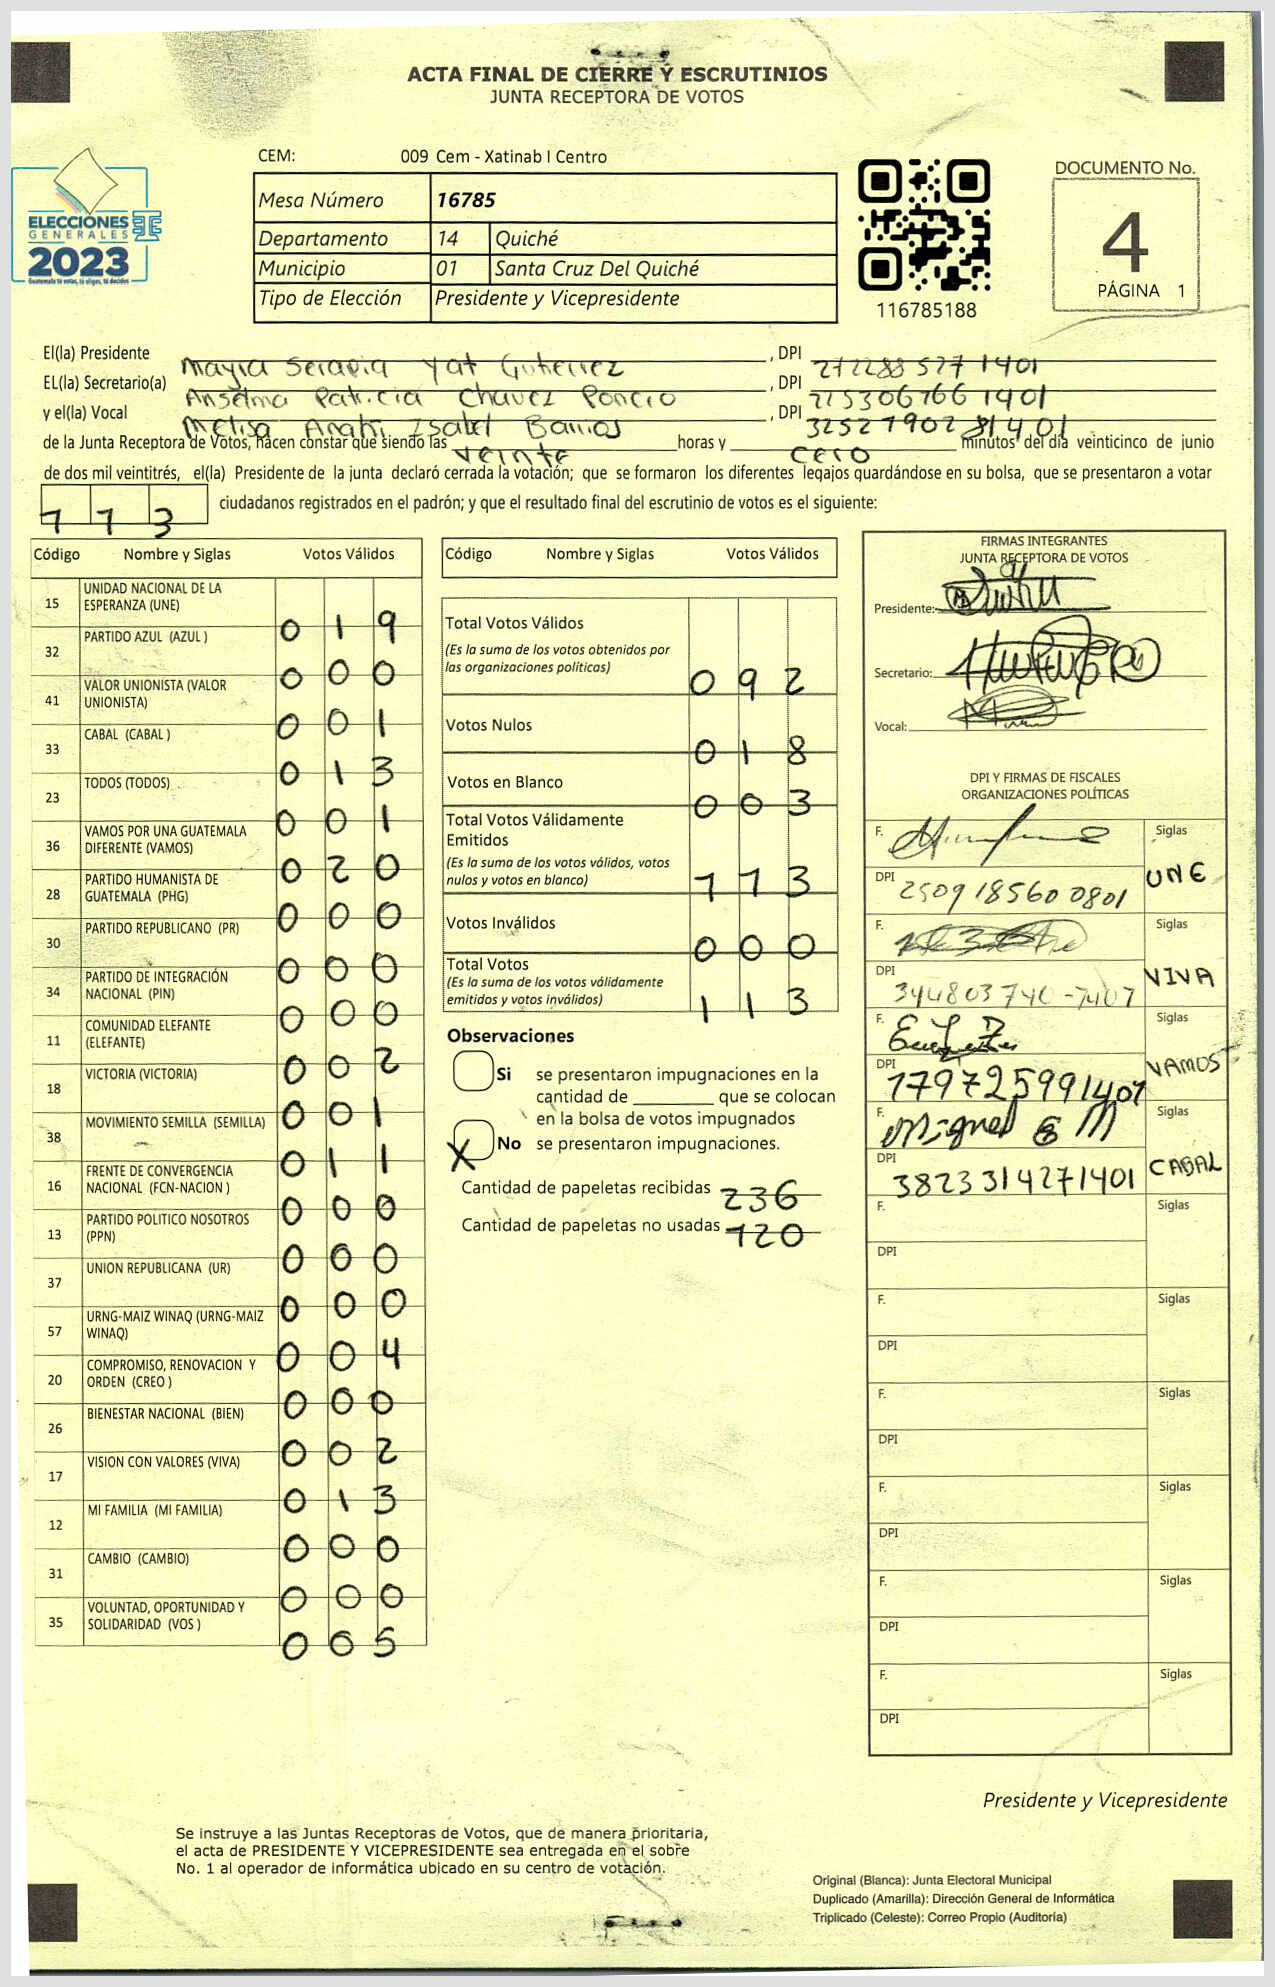 ACTA FINAL DE CIERRE Y ESCRUTINIOS
JUNTA RECEPTORA DE VOTOS
ELECCIONES
GENERALES
2023
Guatemala te votas, tú eliges, tú decides
CEM: 009 Cem - Xatinab I Centro
Mesa Número 16785
Departamento 14 Quiché
Municipio 01 Santa Cruz Del Quiché
Tipo de Elección Presidente y Vicepresidente
116785188
DOCUMENTO No.
4
PÁGINA 1
El(la) Presidente Mayra Serapia Yat Gutierrez , DPI 272288527 1401
EL(la) Secretario(a) Anselma Patricia Chavez Poncio , DPI 225306766 1401
y el(la) Vocal Melisa Anahi Isabel Barrios , DPI
de la Junta Receptora de Votos, hacen constar que siendo las veinte horas y cero minutos del día veinticinco de junio
de dos mil veintitrés, el(la) Presidente de la junta declaró cerrada la votación; que se formaron los diferentes legajos quardándose en su bolsa, que se presentaron a votar
113 ciudadanos registrados en el padrón; y que el resultado final del escrutinio de votos es el siguiente:
Código Nombre y Siglas Votos Válidos
15 UNIDAD NACIONAL DE LA ESPERANZA (UNE) 019
32 PARTIDO AZUL (AZUL ) 000
41 VALOR UNIONISTA (VALOR UNIONISTA) 001
33 CABAL (CABAL ) 013
23 TODOS (TODOS) 001
36 VAMOS POR UNA GUATEMALA DIFERENTE (VAMOS) 020
28 PARTIDO HUMANISTA DE GUATEMALA (PHG) 000
30 PARTIDO REPUBLICANO (PR) 000
34 PARTIDO DE INTEGRACIÓN NACIONAL (PIN) 000
11 COMUNIDAD ELEFANTE (ELEFANTE) 002
18 VICTORIA (VICTORIA) 001
38 MOVIMIENTO SEMILLA (SEMILLA) 011
16 FRENTE DE CONVERGENCIA NACIONAL (FCN-NACION ) 000
13 PARTIDO POLITICO NOSOTROS (PPN) 000
37 UNION REPUBLICANA (UR) 000
57 URNG-MAIZ WINAQ (URNG-MAIZ WINAQ) 004
20 COMPROMISO, RENOVACION Y ORDEN (CREO ) 000
26 BIENESTAR NACIONAL (BIEN) 002
17 VISION CON VALORES (VIVA) 013
12 MI FAMILIA (MI FAMILIA) 000
31 CAMBIO (CAMBIO) 000
35 VOLUNTAD, OPORTUNIDAD Y SOLIDARIDAD (VOS ) 005
Código Nombre y Siglas Votos Válidos
Total Votos Válidos 092
(Es la suma de los votos obtenidos por
las organizaciones políticas)
Votos Nulos 018
Votos en Blanco 003
Total Votos Válidamente
Emitidos 113
(Es la suma de los votos válidos, votos
nulos y votos en blanco)
Votos Inválidos 000
Total Votos 113
(Es la suma de los votos válidamente
emitidos y votos inválidos)
Observaciones
Si se presentaron impugnaciones en la
cantidad de ________ que se colocan
en la bolsa de votos impugnados
X No se presentaron impugnaciones.
Cantidad de papeletas recibidas 236
Cantidad de papeletas no usadas 120
FIRMAS INTEGRANTES
JUNTA RECEPTORA DE VOTOS
Presidente:
Secretario:
Vocal:
DPI Y FIRMAS DE FISCALES
ORGANIZACIONES POLÍTICAS
F. Siglas
DPI 2509 18560 0801 UNE
F. Siglas
DPI 344803740-7407 VIVA
F. Siglas
DPI VAMOS
F. Miguel Siglas
DPI 3823314271401 CABAL
F. Siglas
DPI
F. Siglas
DPI
F. Siglas
DPI
F. Siglas
DPI
F. Siglas
DPI
F. Siglas
DPI
Presidente y Vicepresidente
Se instruye a las Juntas Receptoras de Votos, que de manera prioritaria,
el acta de PRESIDENTE Y VICEPRESIDENTE sea entregada en el sobre
No. 1 al operador de informática ubicado en su centro de votación.
Original (Blanca): Junta Electoral Municipal
Duplicado (Amarilla): Dirección General de Informática
Triplicado (Celeste): Correo Propio (Auditoría)